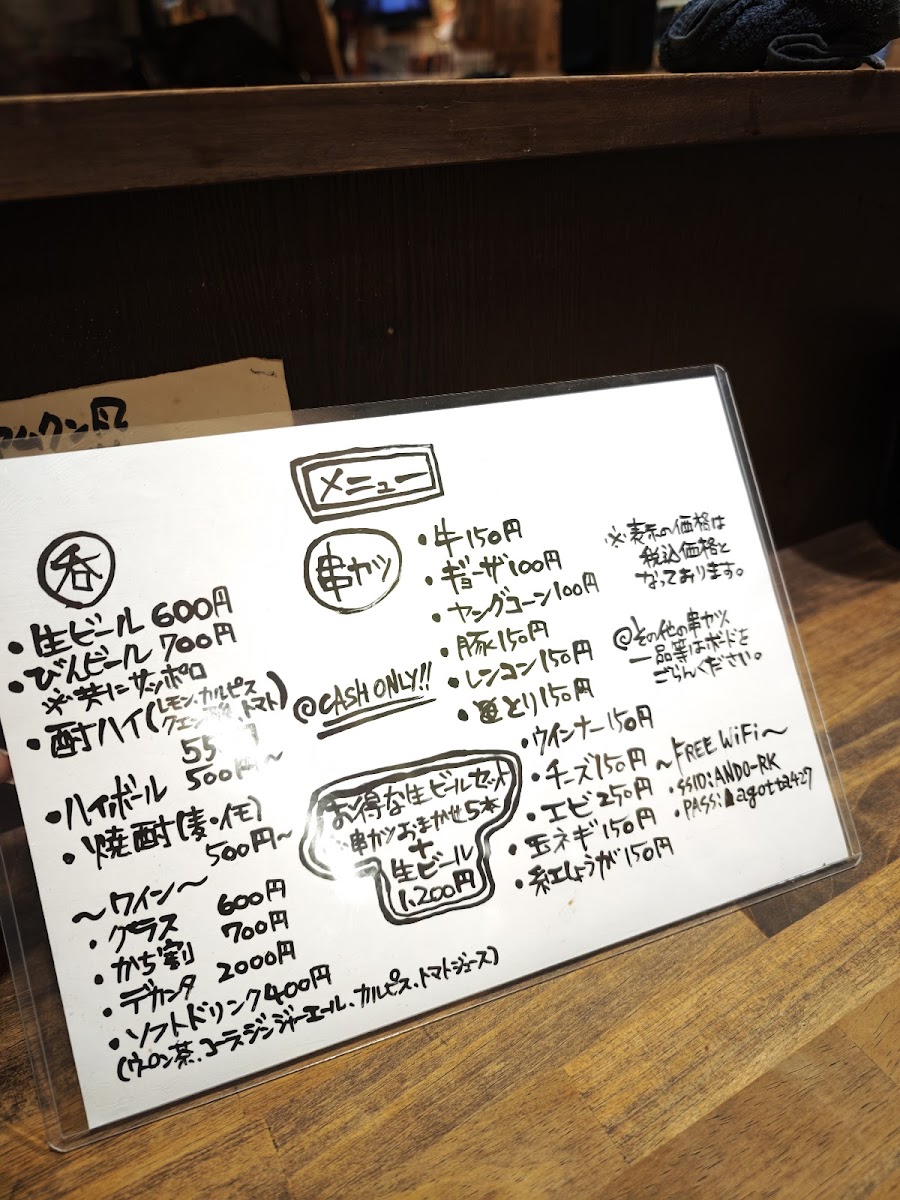 メニュー
呑
・生ビール 600円
・びんビール 700円
※共にサッポロ
・酎ハイ(レモン、カルピス
トマト)
・ハイボール 500円〜
・焼酎(麦・イモ)
500円〜
〜ワイン〜
・グラス 600円
・かち割 700円
・デカンタ 2000円
・ソフトドリンク400円
(ウーロン茶、コーラ、ジンジャーエール、カルピス、トマトジュース)
串カツ
・牛150円
・ギョーザ100円
・ヤングコーン100円
・豚150円
・レンコン150円
・とり150円
・ウインナー150円
・チーズ150円
・エビ250円
・玉ネギ150円
・紅しょうが150円
@CASH ONLY!!
お得な生ビールセット
串カツおまかせ5本
+
生ビール
1,200円
※表示の価格は
税込価格と
なっております。
@その他の串カツ
一品等はボードを
ごらんください。
〜FREE WiFi〜
・SSID:ANDO-RK
・PASS:agotta427